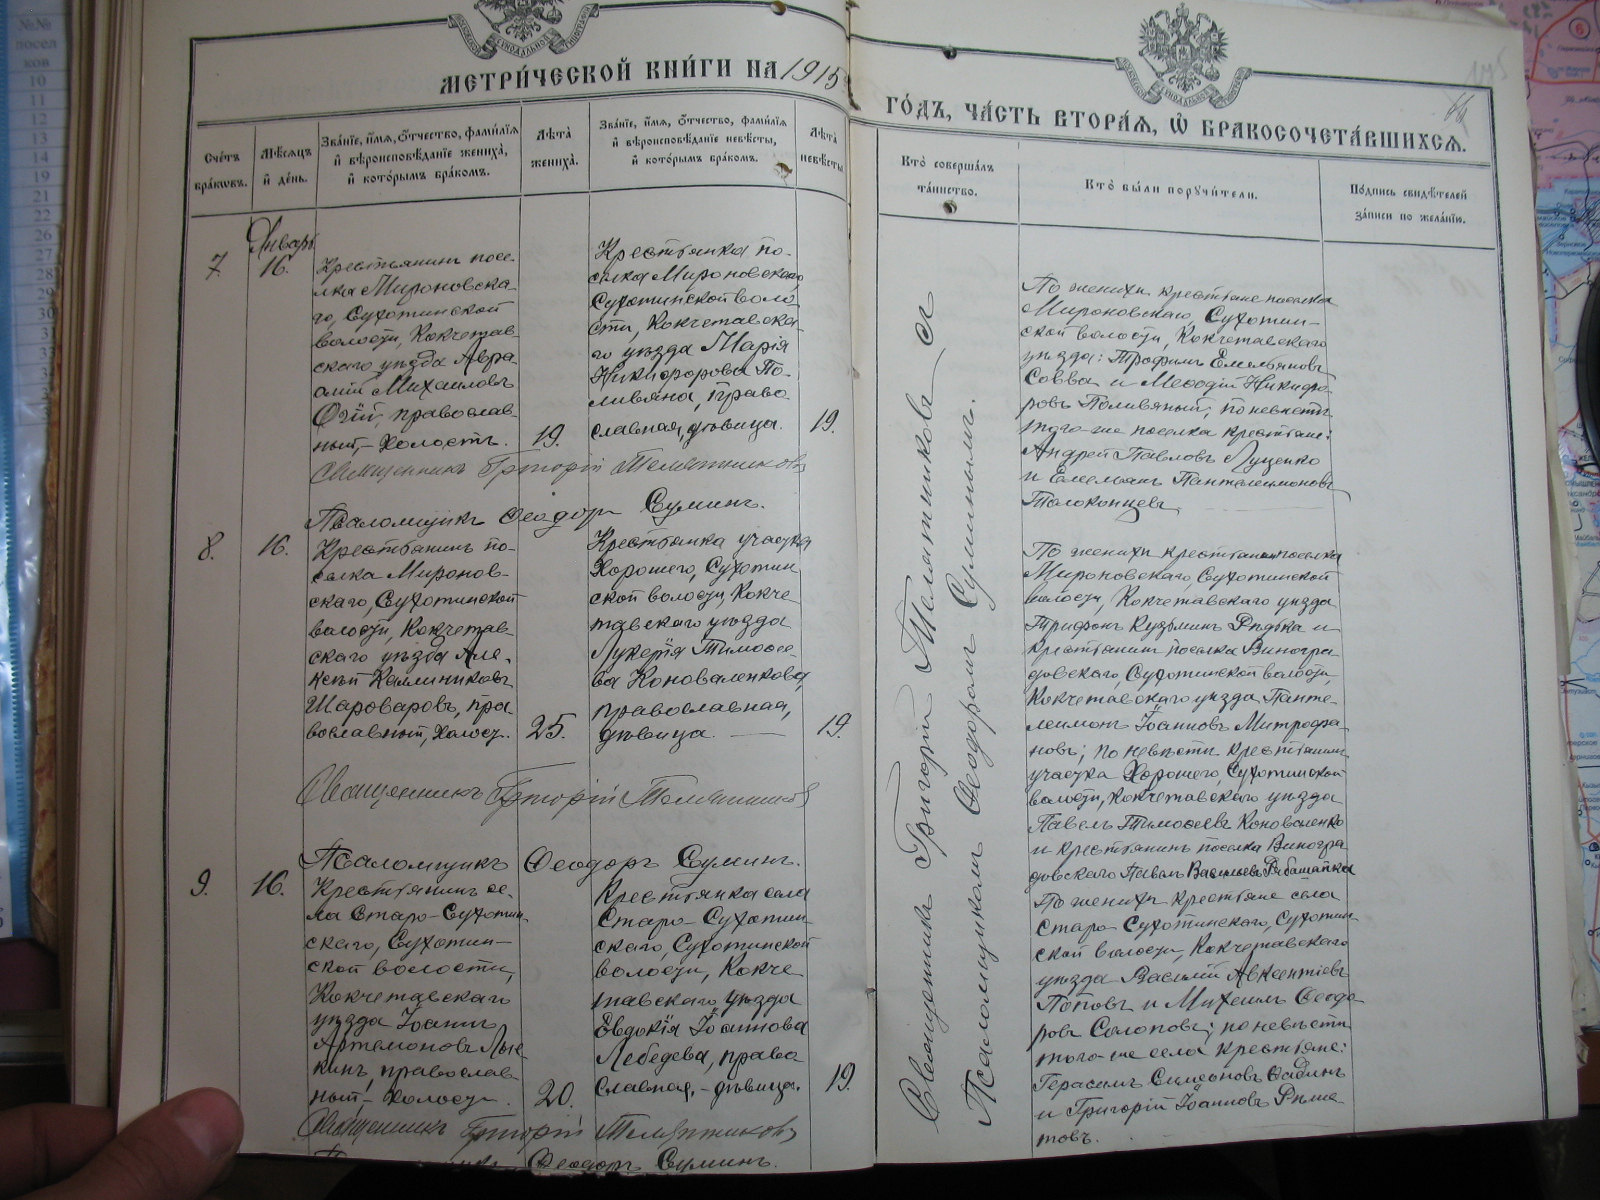 МЕТРИ́ЧЕСКОЙ КНИ́ГИ НА 1915
ГО́ДЪ, ЧА́СТЬ ВТОРА́Я, Ѡ҆ БРАКОСОЧЕТА́ВШИХСЯ.
Сче́тъ бра́ковъ.
Мѣ́сяцъ и҆ де́нь.
Зва́нїе, и҆́мя, ѻ҆́тчество, фами́лїя и҆ вѣроисповѣ́данїе жениха̀, и҆ кото́рымъ бра́комъ.
Лѣ́та жениха̀.
Зва́нїе, и҆́мя, ѻ҆́тчество, фами́лїя и҆ вѣроисповѣ́данїе невѣ́сты, и҆ кото́рымъ бра́комъ.
Лѣ́та невѣ́сты
Кто̀ соверша́лъ та́инство.
Кто̀ бы́ли порꙋчи́тели.
По́дпись свидѣ́телей за́писи по жела́нїю.
7.
Январь
16.
Крестьянинъ посе-
лка Мироновска-
го, Сухотинской
волости, Кокчетав-
скаго уѣзда Авра-
амій Михаиловъ
православ-
ный,- холостъ.
19.
Крестьянка по-
селка Мироновскаго,
Сухотинской воло
сти, Кокчетавска-
го уѣзда Марія
Никифорова По-
ливяна, право
славная, дѣвица.
19.
По женихѣ крестьяне поселка
Мироновскаго, Сухотин-
ской волости, Кокчетавскаго
уѣзда: Трофимъ Емельяновъ
Савва и Меѳодій Никифо-
ровъ Поливяный; по невѣстѣ
того-же поселка крестьяне:
Андрей Павловъ Луценко
и Емельянъ Пантелеимоновъ
Священникъ Григорій Телятниковъ
Псаломщикъ Ѳеодоръ Сулинъ.
8.
16.
Крестьянинъ по-
селка Миронов-
скаго, Сухотинской
волости, Кокчетав-
скаго уѣзда Але-
ксѣй Каллиниковъ
Шароваровъ, пра
вославный, холост.
25.
Крестьянка участка
Хорошего, Сухотин
ской волости, Кокче
тавскаго уѣзда
Лукерія Тимоѳее-
ва Коноваленкова,
православная,
дѣвица.
19.
По женихѣ крестьянинъ поселка
Мироновскаго, Сухотинской
волости, Кокчетавскаго уѣзда
Трифонъ Кузьминъ Рѣдька и
крестьянинъ поселка Виногра-
довскаго, Сухотинской волости,
Кокчетавскаго уѣзда Панте-
леимонъ Іоанновъ Митрофа-
новъ; по невѣстѣ крестьянинъ
участка Хорошего, Сухотинской
волости, Кокчетавскаго уѣзда
Павелъ Тимоѳеевъ Коноваленко
и крестьянинъ поселка Виногра
довскаго Павелъ Васильевъ Рябошапка
Священникъ Григорій Телятниковъ
Псаломщикъ Ѳеодоръ Сулинъ.
9.
16.
Крестьянинъ се-
ла Старо-Сухотин-
скаго, Сухотин-
ской волости,
Кокчетавскаго
уѣзда Іоаннъ
Артемоновъ
православ-
ный- холост.
20.
Крестьянка села
Старо-Сухотин
скаго, Сухотинской
волости, Кокче
тавскаго уѣзда
Евдокія Іоаннова
Лебедева, право
славная,- дѣвица.
19.
По женихѣ крестьяне села
Старо Сухотинскаго, Сухотин-
ской волости, Кокчетавскаго
уѣзда Василій Авксентіевъ
Поповъ и Михаилъ Ѳеодо
ровъ Солоповъ; по невѣстѣ
того-же села крестьяне:
Герасимъ Симеоновъ
и Григорій Іоанновъ Рѣше
товъ.
Священникъ Григорій Телятниковъ
Ѳеодоръ Сулинъ.
Священникъ Григорій Телятниковъ - съ
Псаломщикомъ Ѳеодоромъ Сулинымъ.